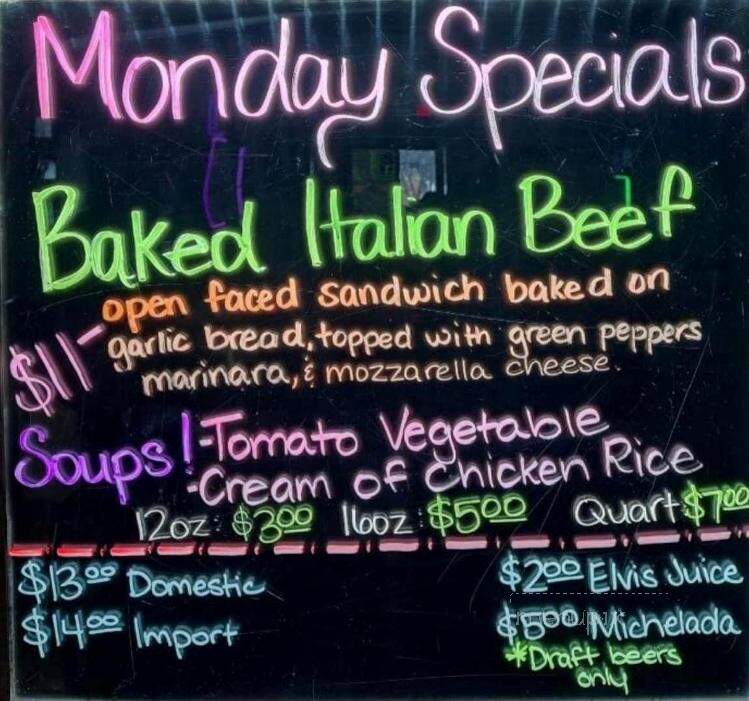 Monday Specials
Baked Italian Beef
$11- open faced sandwich baked on
garlic bread, topped with green peppers
marinara, & mozzarella cheese.
Soups! -Tomato Vegetable
-Cream of Chicken Rice
12oz: $3.00 16oz: $5.00 Quart $7.00
$13.00 Domestic $2.00 Elvis Juice
$14.00 Import $5.00 Michelada
*Draft beers
only